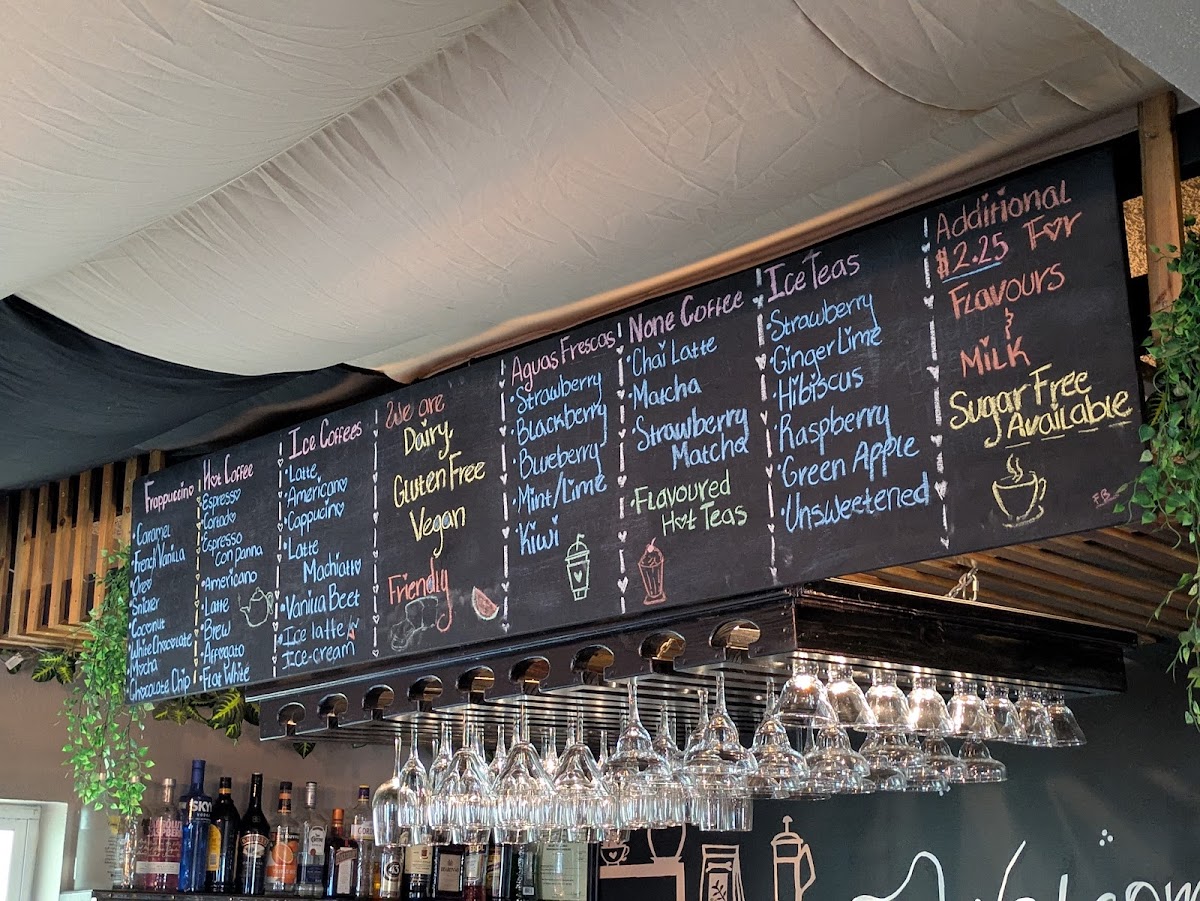 Frappuccino
•Caramel
•French Vanilla
•Oreo
•Coconut
•White Chocolate
•Mocha
•Chocolate Chip
Hot Coffee
•Espresso
•Cortado
•Espresso
con panna
•Americano
•Latte
•Brew
•Affogato
•Flat White
Ice Coffees
•Latte
•Americano
•Cappucino
•Latte
Machiatto
•Vanilla Beet
•Ice latte
Ice-cream
We are
Dairy,
Gluten Free
Vegan
Friendly
Aguas Frescas
•Strawberry
•Blackberry
•Blueberry
•Mint/Lime
•Kiwi
None Coffee
•Chai Latte
•Matcha
•Strawberry
Matcha
•Flavoured
Hot Teas
Ice Teas
•Strawberry
•Ginger Lime
•Hibiscus
•Raspberry
•Green Apple
•Unsweetened
Additional
$2.25 For
Flavours
&
Milk
Sugar Free
Available
F.B.
SKYY
Welcom